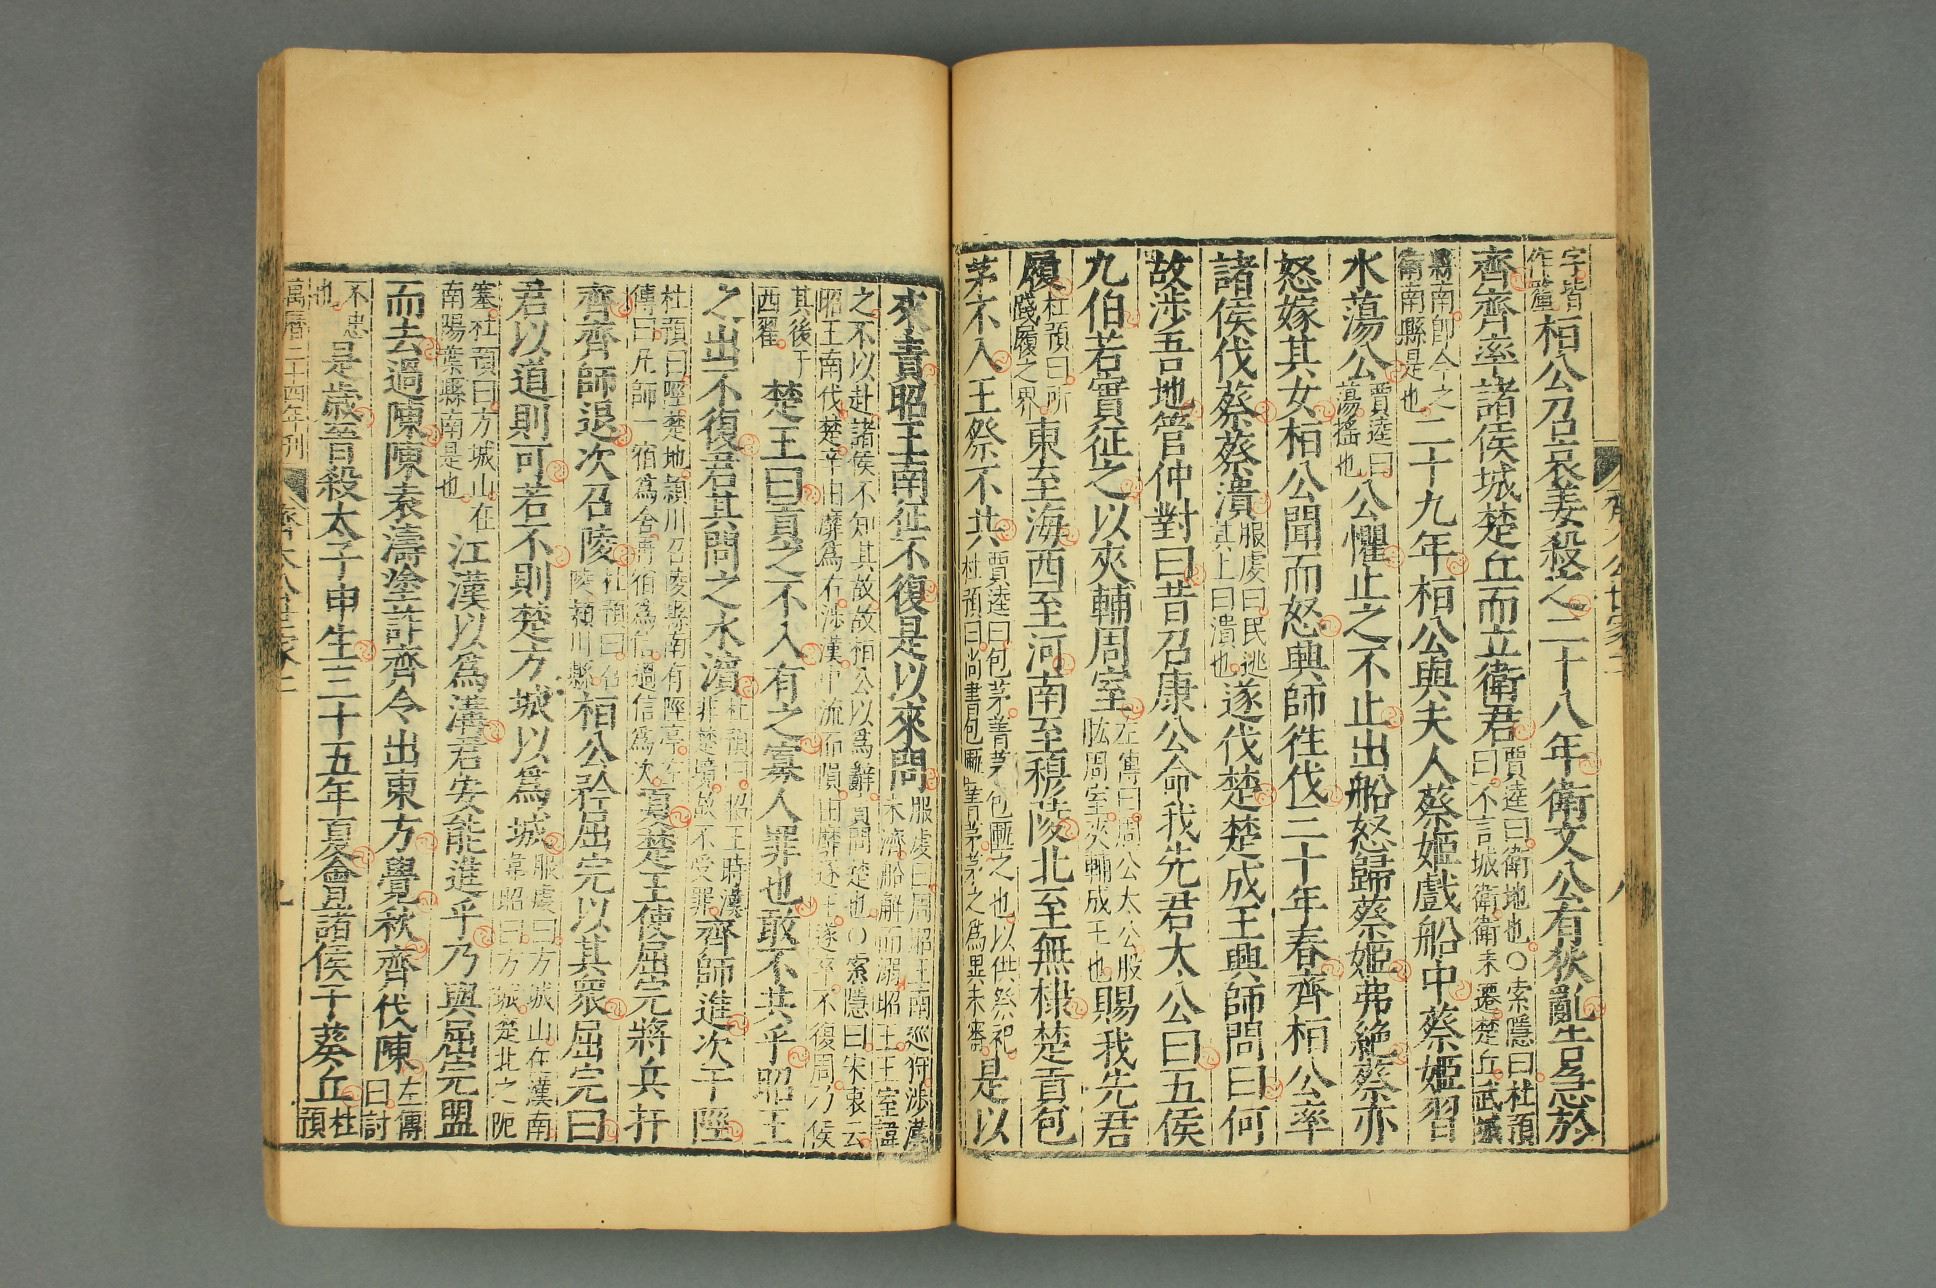 字皆作釐桓公召哀姜殺之二十八年衛文公有狄亂告急於
齊齊率諸侯城楚丘而立衛君賈逵曰衛地也○索隱曰杜預曰不言城衛衛未遷楚丘武城
縣南即今之衛南縣是也二十九年桓公與夫人蔡姬戲船中蔡姬習
水蕩公賈逵曰蕩搖也公懼止之不止出船怒歸蔡姬弗絕蔡亦
怒嫁其女桓公聞而怒興師徃伐三十年春齊桓公率
諸侯伐蔡蔡潰服虔曰民逃其上曰潰也遂伐楚楚成王興師問曰何
故涉吾地管仲對曰昔召康公命我先君太公曰五侯
九伯若實征之以夾輔周室左傳曰周公太公股肱周室夾輔成王也賜我先君
履杜預曰所踐履之界東至海西至河南至穆陵北至無棣楚貢包
茅不入王祭不共賈逵曰包茅菁茅包匭之也以供祭祀杜預曰尚書包匭菁茅茅之為異未審是以
來責昭王南征不復是以來問服虔曰周昭王南巡狩涉漢未濟船解而溺昭王王室諱
之不以赴諸侯不知其故故桓公以為辭責問楚也○索隱曰宋衷云昭王南伐楚辛由靡為右涉漢中流而隕由靡逐王遂卒不復周乃侯
其後于西翟楚王曰貢之不入有之寡人罪也敢不共乎昭王
之出不復君其問之水濱杜預曰昭王時漢非楚境故不受罪齊師進次于陘
杜預曰陘楚地潁川召陵縣南有陘亭左傳曰凡師一宿為舍再宿為信過信為次夏楚王使屈完將兵扞
齊齊師退次召陵杜預曰召陵潁川縣桓公矜屈完以其衆屈完曰
君以道則可若不則楚方城以為城服虔曰方城山在漢南韋昭曰方城楚北之阨
塞杜預曰方城山在南陽葉縣南是也江漢以為溝君安能進乎乃與屈完盟
而去過陳陳袁濤塗詐齊令出東方覺秋齊伐陳左傳曰討
不忠也是歲晉殺太子申生三十五年夏會諸侯于葵丘杜預
萬曆二十四年刊 齊太公世家二 九